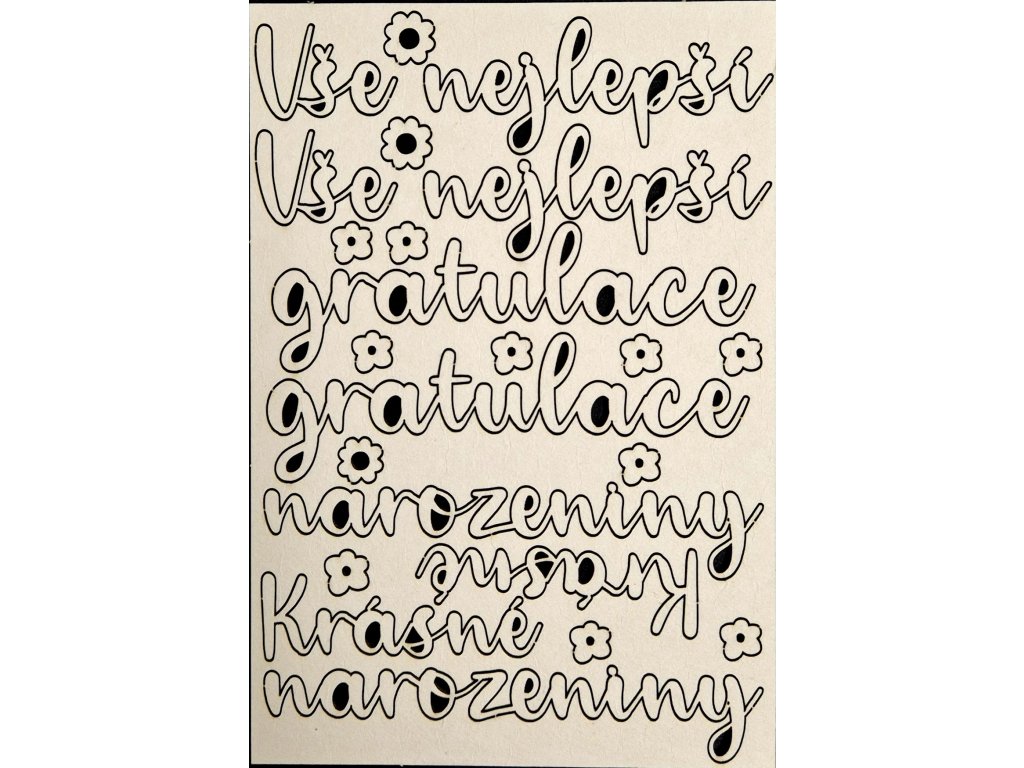 Vše nejlepší
Vše nejlepší
gratulace
gratulace
narozeniny
Krásné
Krásné
narozeniny